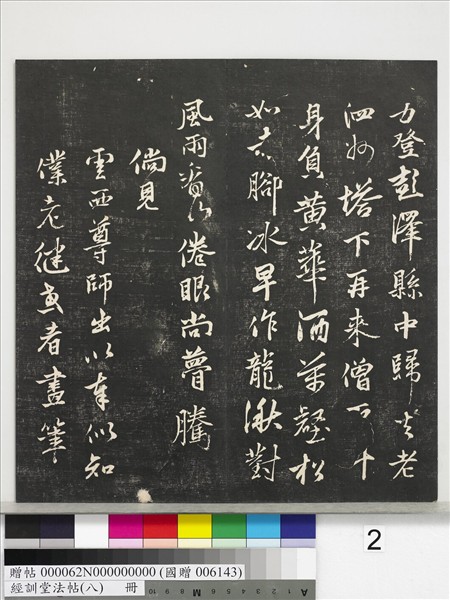 力登彭澤縣中歸去老
泗州塔下再來僧百千
身負黃華酒萬壑松
如赤腳冰早作龍湫對
風雨看山倦眼尚瞢騰
倘見
雲西尊師出以奉似知
僕老健者畫筆
2
贈帖 000062N000000000 (國贈 006143)
經訓堂法帖(八) 冊